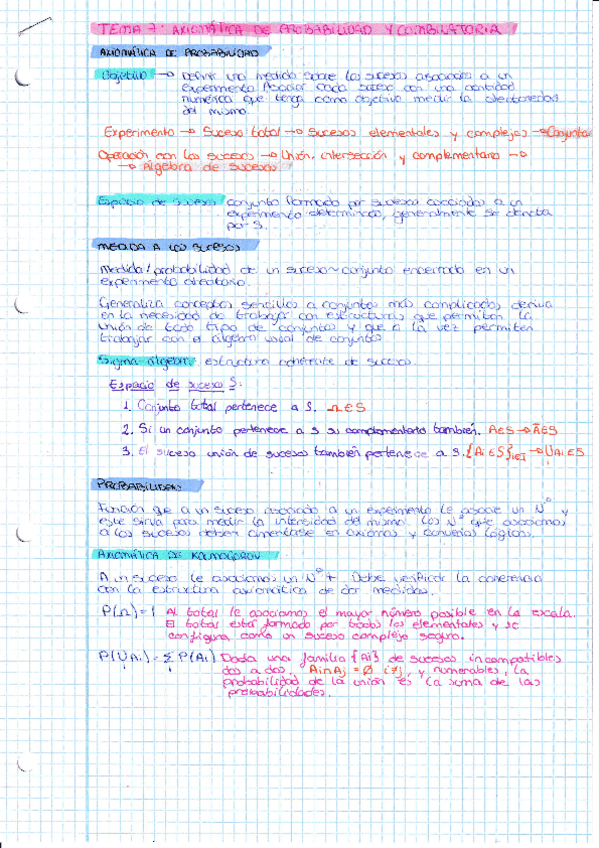 TEMA 7: AXIOMÁTICA DE PROBABILIDAD Y COMBILATORIA
AXIOMÁTICA DE PROBABILIDAD
Objetivo → Definir una medida sobre los sucesos asociados a un
experimento. Asociar cada suceso con una cantidad
numérica que tenga como objetivo medir la
del mismo.
Experimento → Suceso total → Sucesos elementales y complejos → Conjuntos
Operación con los sucesos → Unión, intersección y complementario →
→ Álgebra de sucesos
Espacio de sucesos conjunto formado por sucesos asociados a un
experimento determinado, generalmente se denota
por S.
MEDIDA A LOS SUCESOS
Medida/probabilidad de un suceso~conjunto encerrado en un
experimento aleatorio.
Generaliza conceptos sencillos a conjuntos más complicados, deriva
en la necesidad de trabajar con estructuras que permitan la
unión de todo tipo de conjuntos y que a la vez permiten
trabajar con el álgebra usual de conjuntos.
Sigma álgebra: estructura coherente de sucesos.
Espacio de sucesos S:
1. Conjunto total pertenece a S. Ω∈S
2. Si un conjunto pertenece a S su complementario también. A∈S → Ā∈S
3. El suceso unión de sucesos también pertenece a S. {Ai∈S}i∈I → ∪Ai∈S
i
PROBABILIDAD
Función que a un suceso asociado a un experimento le asocie un Nº y
este sirva para medir la intensidad del mismo. Los Nº que asociamos
a los sucesos deben cimentarse en axiomas y convenios lógicos.
AXIOMÁTICA DE KOLMOGOROV
A un suceso le asociamos un Nº+. Debe verificar la coherencia
con la estructura axiomática de dar medidas.
P(Ω)=1 Al total le asociamos el mayor número posible en la escala.
El total está formado por todos los elementales y se
configura como un suceso complejo seguro.
P(∪Ai)=Σ P(Ai) Dada una familia {Ai} de sucesos incompatibles
i i dos a dos, Ai∩Aj = Ø i≠j, y numerables, la
probabilidad de la unión es la suma de las
probabilidades.